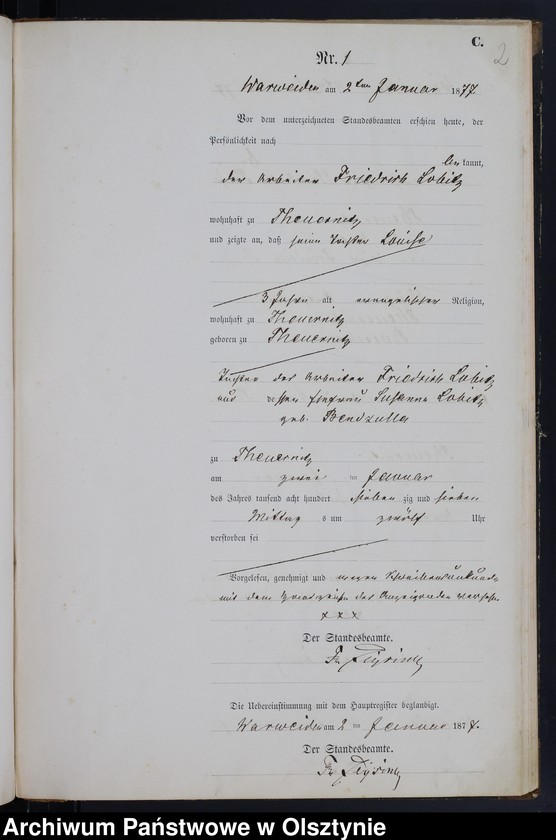 C.
2
Nr. 1
Warweiden am 2ten Januar 1877
Vor dem unterzeichneten Standesbeamten erschien heute, der
Persönlichkeit nach
bekannt,
der Arbeiter Friedrich Lobitz
wohnhaft zu Theuernitz
und zeigte an, daß seine Tochter Louise
3 Jahre alt evangelischer Religion,
wohnhaft zu Theuernitz
geboren zu Theuernitz
Tochter des Arbeiter Friedrich Lobitz
und dessen Ehefrau Susanna Lobitz
geb. Bendzulla
zu Theuernitz
am zwei ten Januar
des Jahres tausend acht hundert sieben zig und sieben
Mittag s um zwölf Uhr
verstorben sei
Vorgelesen, genehmigt und wegen Schreibensunkunde
mit dem Handzeichen des Anzeigenden versehen
x x x
Der Standesbeamte.
Die Uebereinstimmung mit dem Hauptregister beglaubigt.
Warweiden am 2 ten Januar 1877.
Der Standesbeamte.
Archiwum Państwowe w Olsztynie